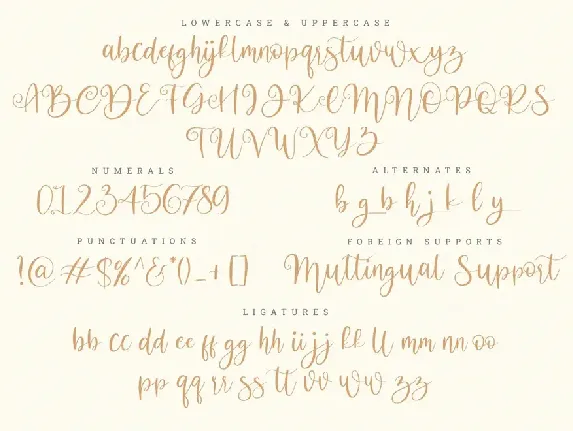 LOWERCASE & UPPERCASE
abcdefghijklmnopqrstuvwxyz
ABCDEFGHIJKLMNOPQRS
TUVWXYZ
NUMERALS
0123456789
ALTERNATES
b g b h j k l y
PUNCTUATIONS
!@#$%^&*()_+[]
FOREIGN SUPPORTS
Multingual Support
LIGATURES
bb cc dd ee ff gg hh ii jj kk ll mm nn oo
pp qq rr ss tt vv ww zz